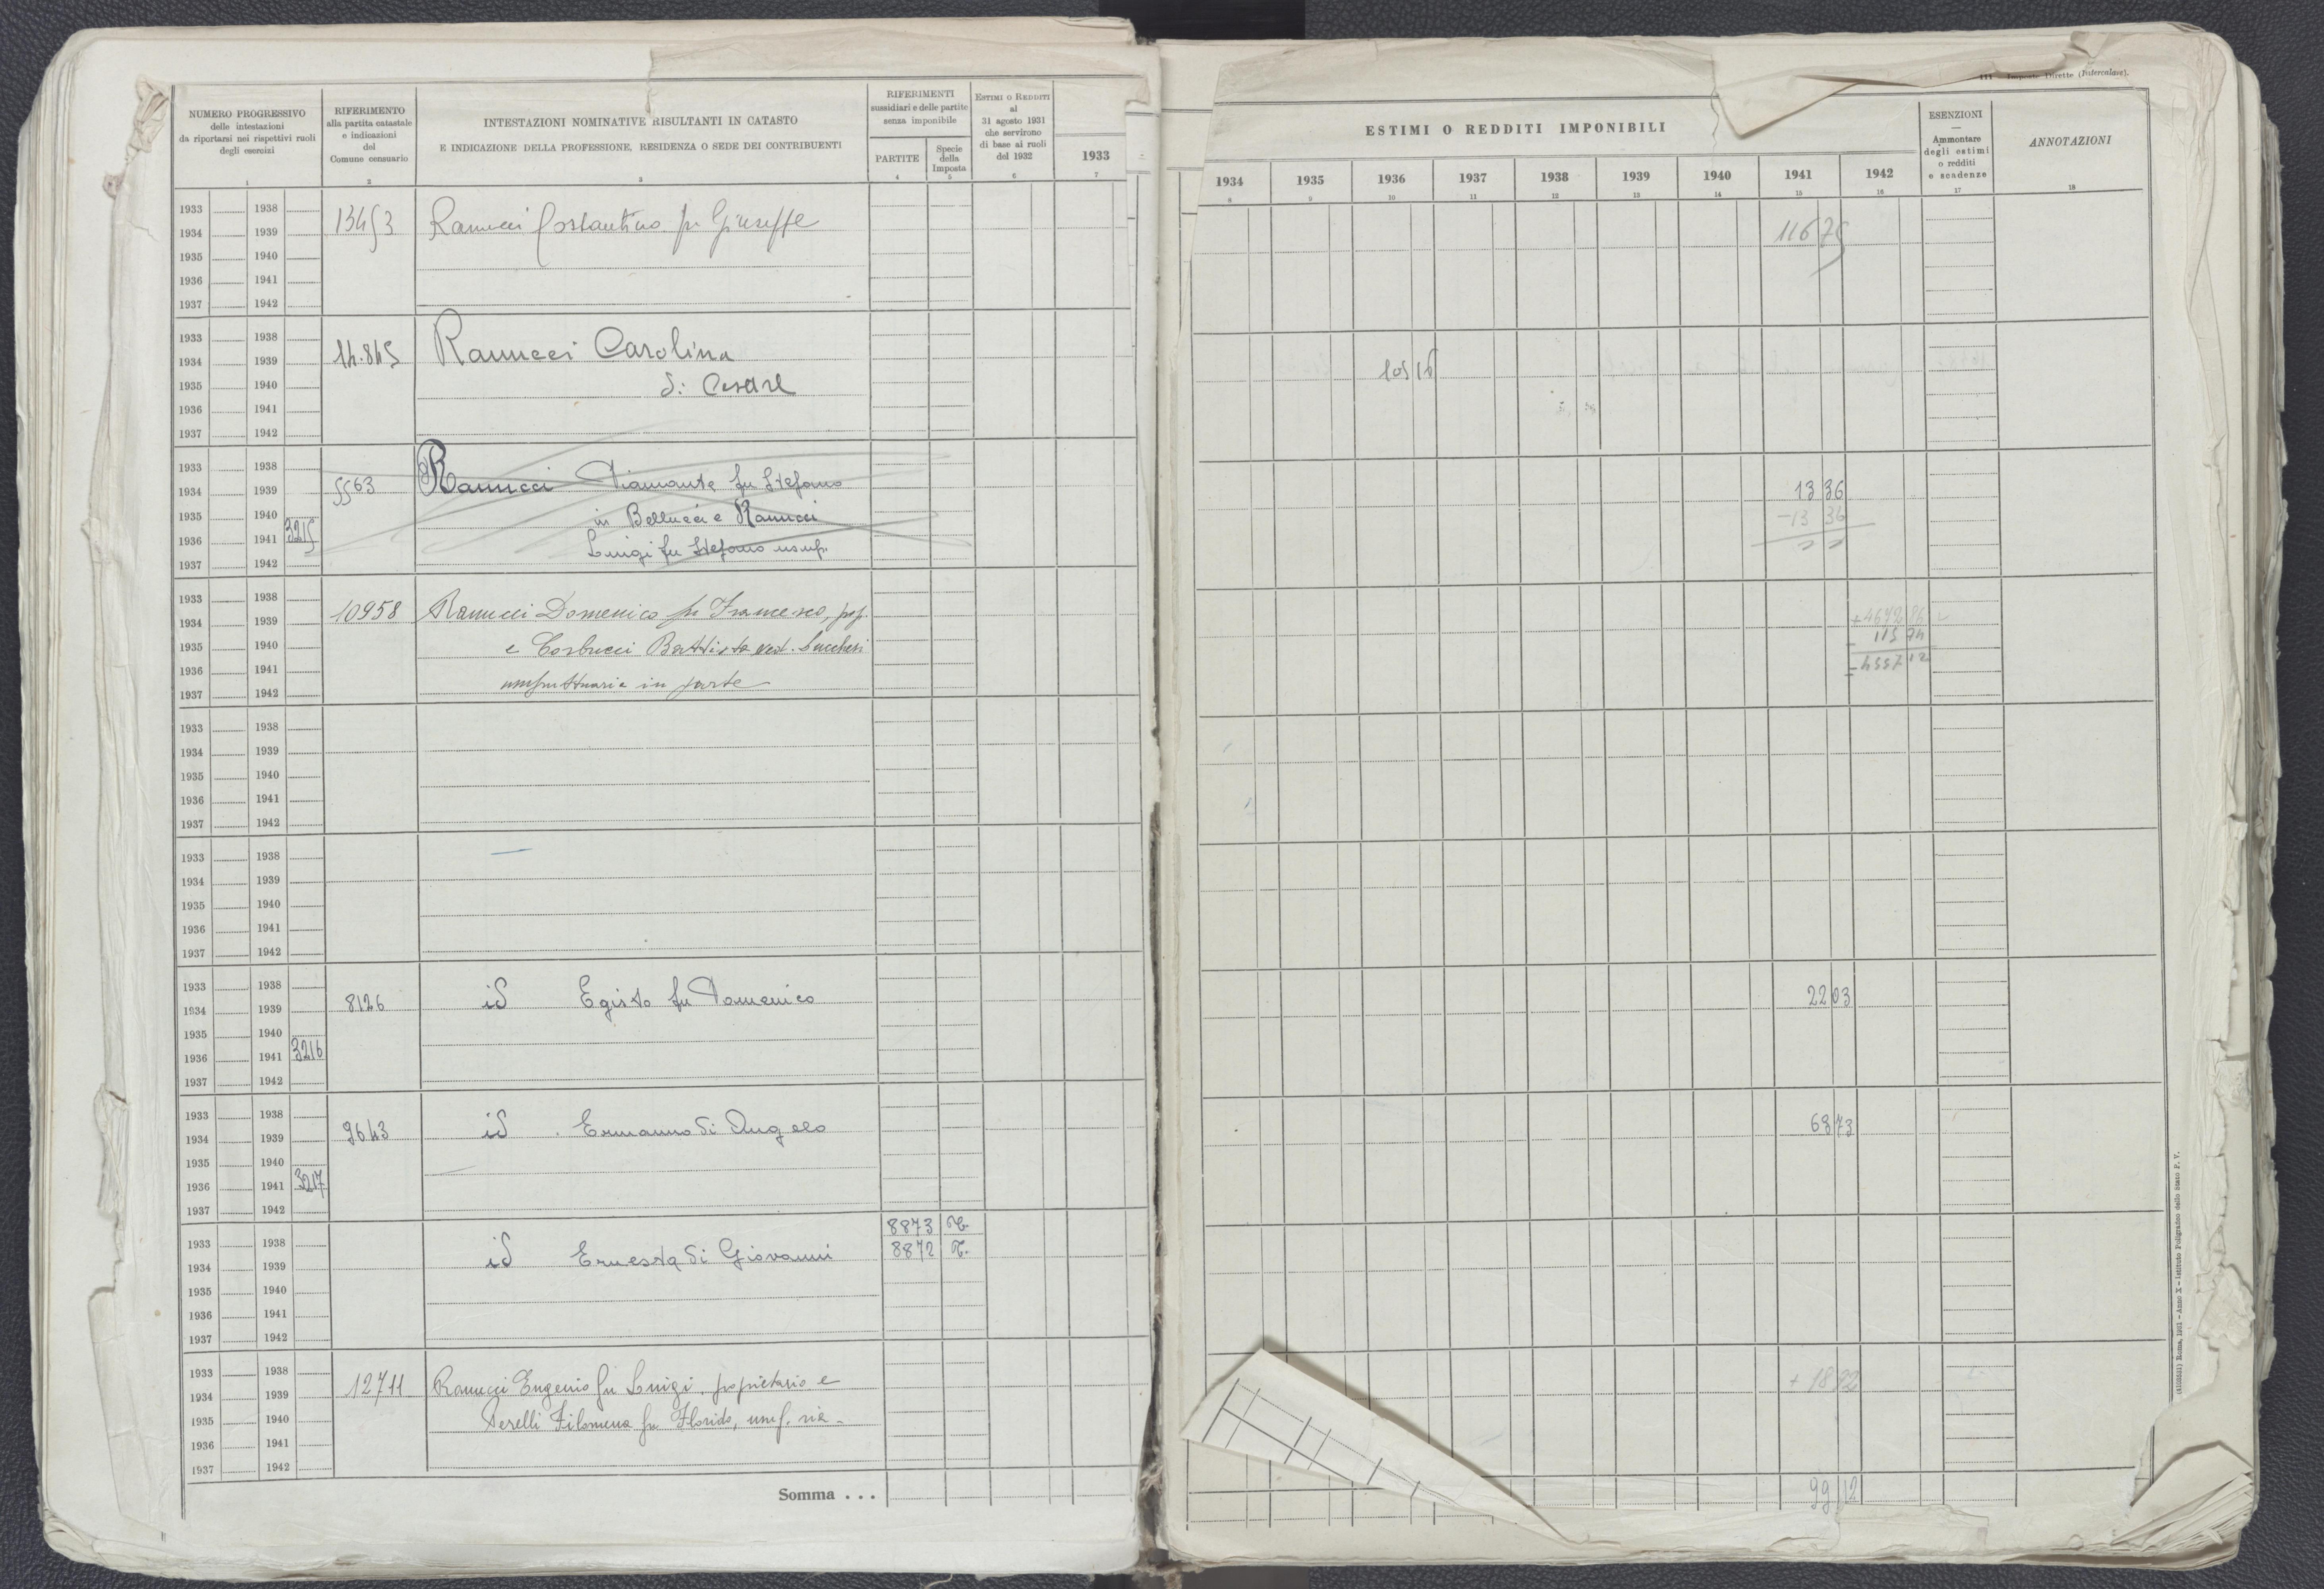 111 - Imposte Dirette (Intercalare).
NUMERO PROGRESSIVO
delle intestazioni
da riportarsi nei rispettivi ruoli
degli esercizi
1
RIFERIMENTO
alla partita catastale
e indicazioni
del
Comune censuario
2
INTESTAZIONI NOMINATIVE RISULTANTI IN CATASTO
E INDICAZIONE DELLA PROFESSIONE, RESIDENZA O SEDE DEI CONTRIBUENTI
3
RIFERIMENTI
sussidiari e delle partite
senza imponibile
PARTITE
4
Specie
della
Imposta
5
ESTIMI O REDDITI
al
31 agosto 1931
che servirono
di base ai ruoli
del 1932
6
1933
7
ESTIMI O REDDITI IMPONIBILI
1934 1935 1936 1937 1938 1939 1940 1941 1942
8 9 10 11 12 13 14 15 16
ESENZIONI
Ammontare
degli estimi
o redditi
e scadenze
17
ANNOTAZIONI
18
1933 1938
1934 1939 13453 Ranucci Costantino fu Giuseppe 116 75
1935 1940
1936 1941
1937 1942
1933 1938
1934 1939 14.845 Ranucci Carolina 105 16
1935 1940 di Cesare
1936 1941
1937 1942
1933 1938
1934 1939 5563 Ranucci Diamante fu Stefano 13 36
1935 1940 in Bellucci e Ranucci -13 36
1936 1941 3215 Luigi fu Stefano usuf.
1937 1942
1933 1938
1934 1939 10958 Ranucci Domenico fu Francesco, prop. +4672 86
1935 1940 e Corbucci Battista ved. Lucchesi 115 74
1936 1941 usufruttuaria in parte 4557 12
1937 1942
1933 1938
1934 1939
1935 1940
1936 1941
1937 1942
1933 1938
1934 1939
1935 1940
1936 1941
1937 1942
1933 1938
1934 1939 8126 id Egisto fu Domenico 22 03
1935 1940
1936 1941 3216
1937 1942
1933 1938
1934 1939 9643 id Ermanno di Angelo 68 73
1935 1940
1936 1941 3217
1937 1942
8873
1933 1938 8872
1934 1939 id Ernesta di Giovanni
1935 1940
1936 1941
1937 1942
1933 1938
1934 1939 12711 Ranucci Eugenio fu Luigi, proprietario e
1935 1940 Serelli Filomena fu Florido, usuf. ria
1936 1941
1937 1942
Somma . . . 99 12
(4100351) Roma, 1931 - Anno X - Istituto Poligrafico dello Stato P. V.